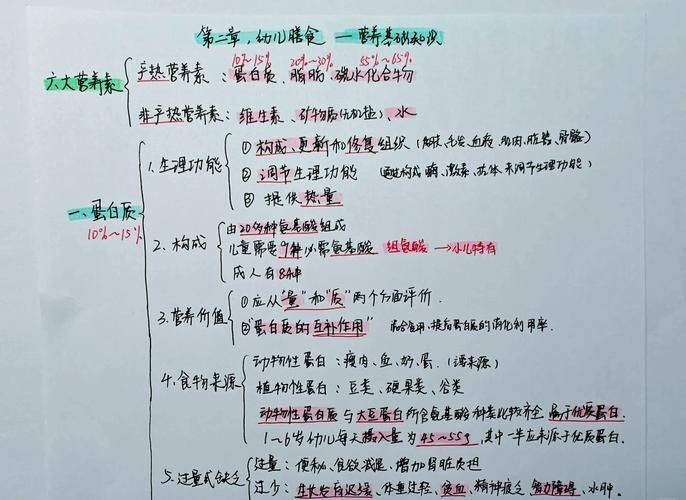 第二章，幼儿膳食 — 营养基础知识
10%~15% 20%~30% 55%~65%
六大营养素
产热营养素：蛋白质、脂肪、碳水化合物
非产热营养素：维生素、矿物质(无机盐)、水
一、蛋白质
10%~15%
1.生理功能
①构成、更新和修复组织
②调节生理功能 (通过构成酶、激素、抗体来调节生理功能)
③提供热量
2.构成
由20多种氨基酸组成
儿童需要9种必需氨基酸 组氨酸→小儿特有
成人有8种
3.营养价值
①应从"量"和"质"两个方面评价.
②"蛋白质的互补作用" 混合食用,提高蛋白质的消化利用率.
4.食物来源
动物性蛋白：瘦肉、鱼、奶、蛋.
植物性蛋白：豆类、硬果类、谷类
动物性蛋白质与大豆蛋白所含氨基酸种类比较齐全 属于优质蛋白.
1~6岁幼儿每天摄入量为45~55g,其中一半应来源于优质蛋白.
5.过量或缺乏
过量：便秘、食欲减退,增加肾脏负担
过少：生长发育迟缓、体重过轻、贫血、精神疲乏、智力障碍、水肿.